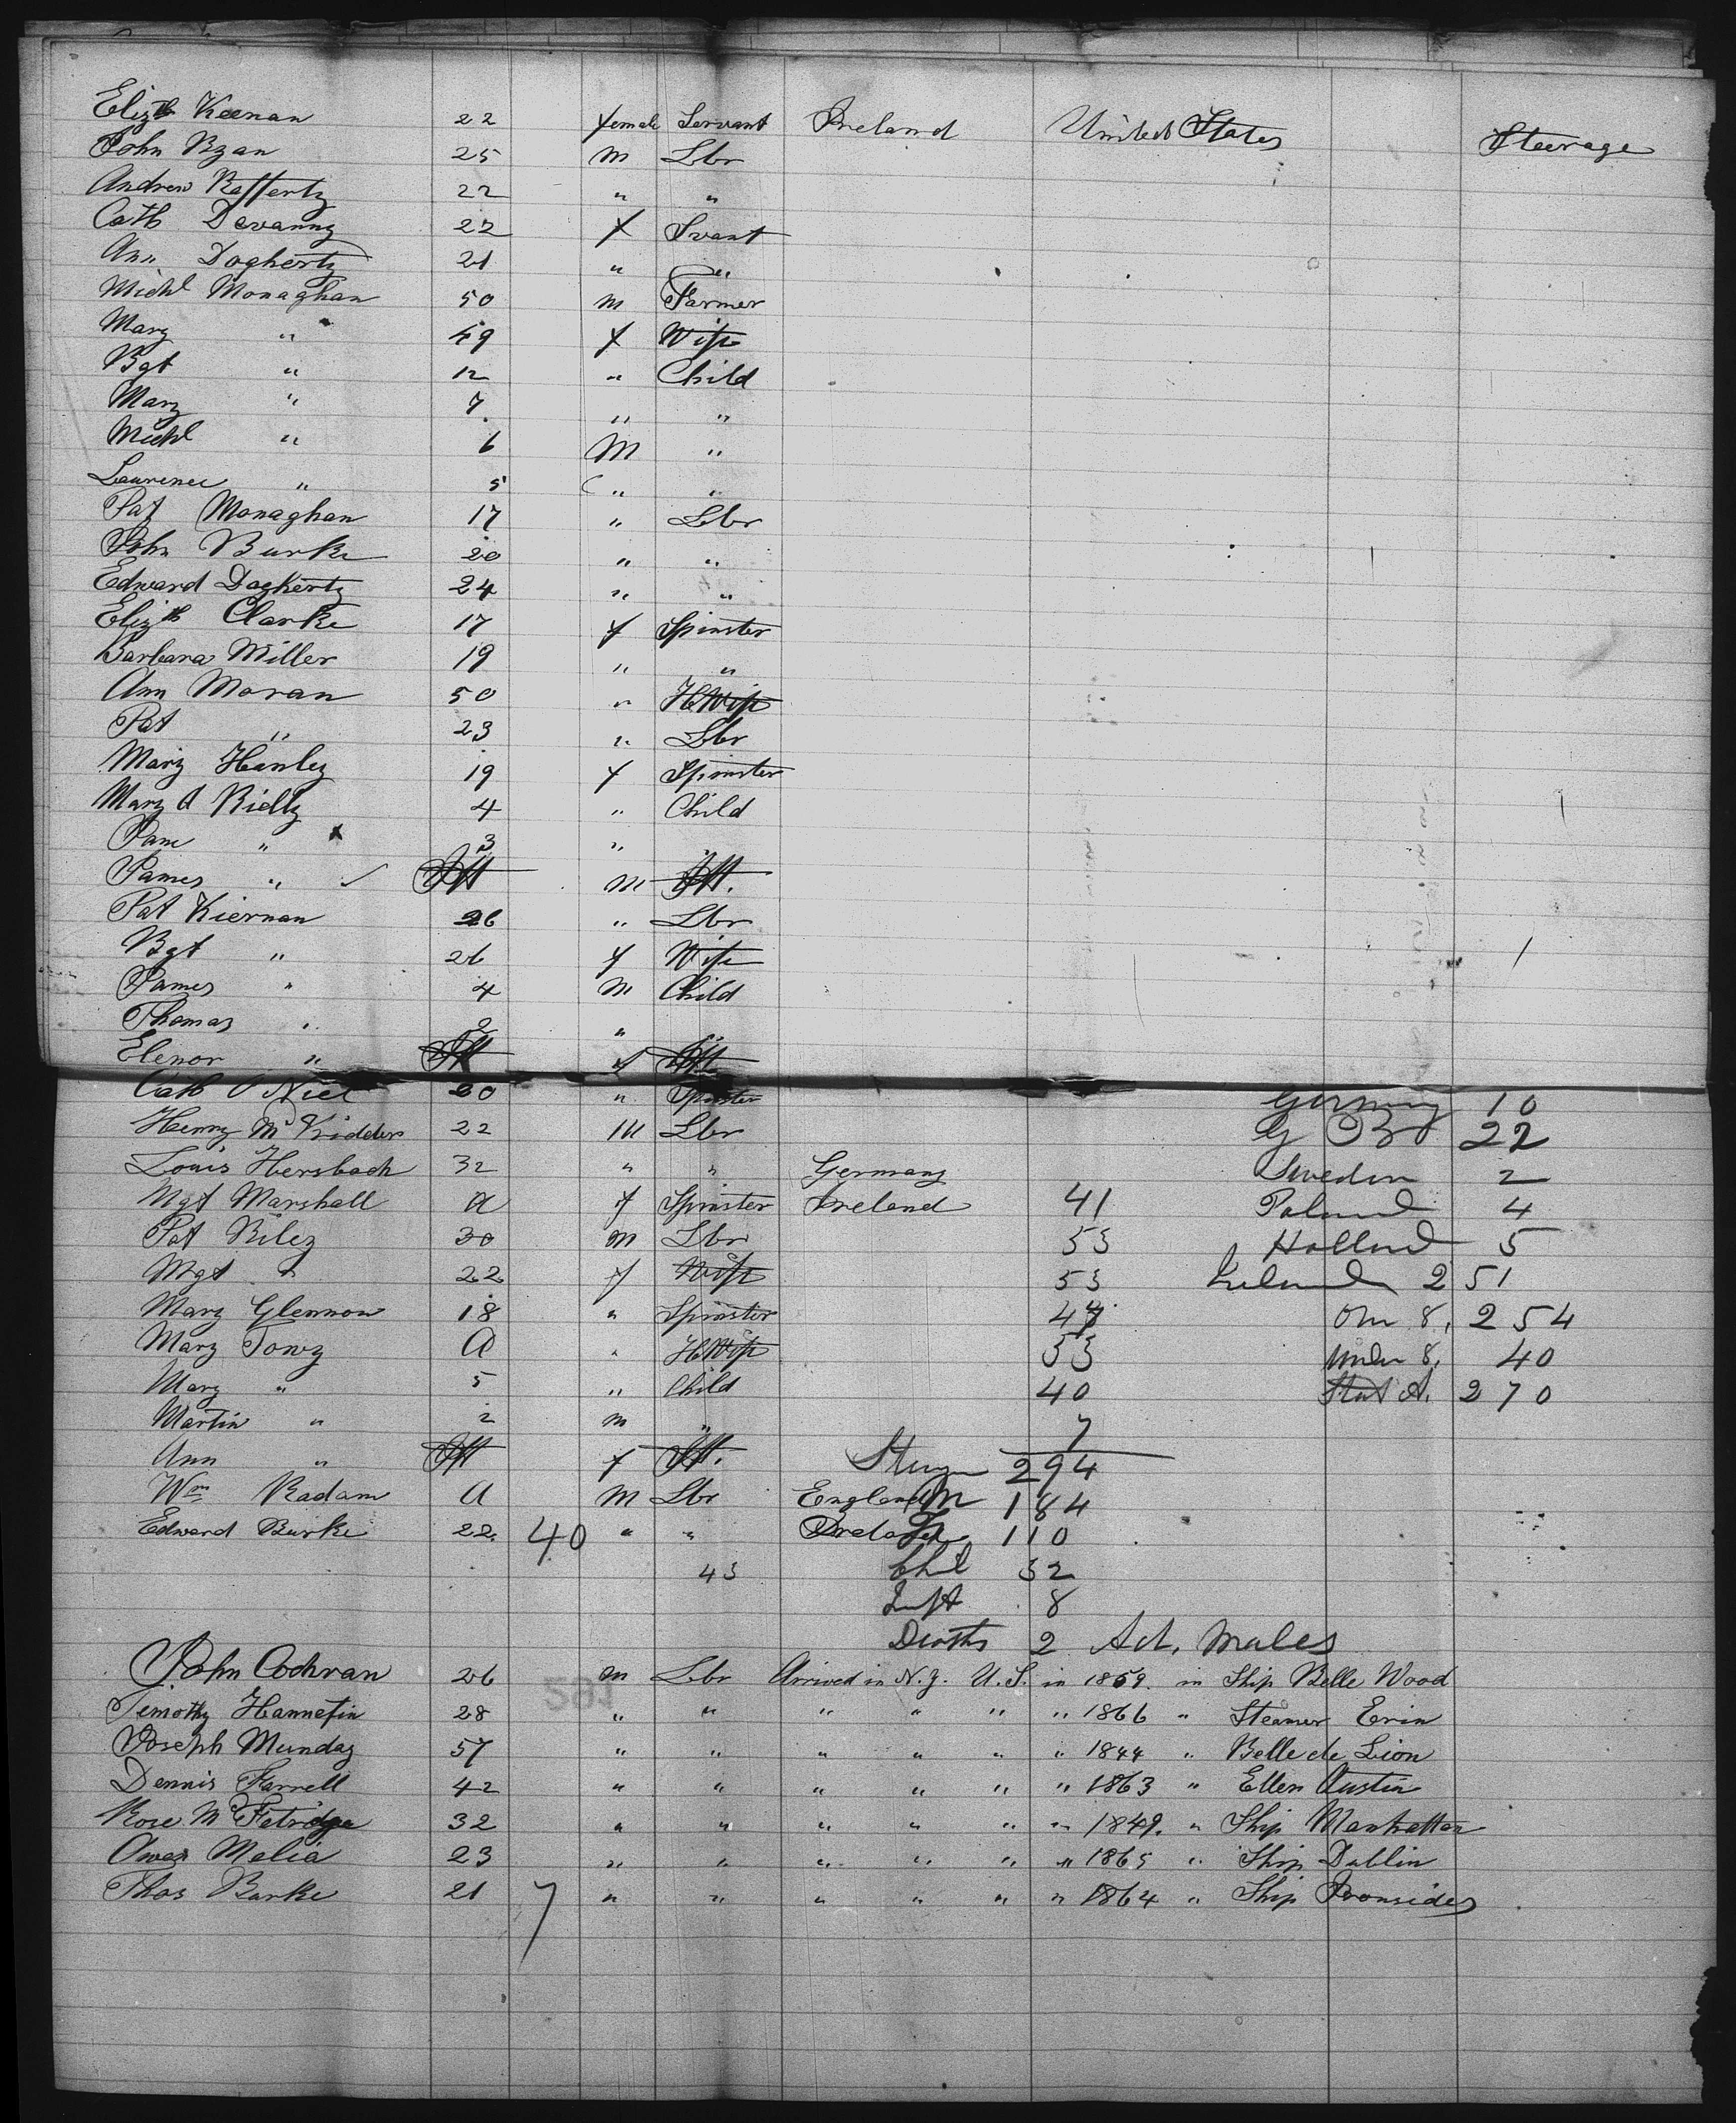 Elizth Keenan 22 female Servant Ireland United States Steerage
John Ryan 25 m Lbr
Andrew Rafferty 22 " "
Cath Devanny 22 f Svant
Ann Dogherty 21 " "
Michl Monaghan 50 m Farmer
Mary " 49 f Wife
Bgt " 12 " Child
Mary " 7 " "
Michl " 6 M "
Laurence " 5 " "
Pat Monaghan 17 " Lbr
John Burke 20 " "
Edward Dogherty 24 " "
Elizth Clarke 17 f Spinster
Barbara Miller 19 " "
Ann Moran 50 " HWife
Pat " 23 " Lbr
Mary Hanley 19 f Spinster
Mary A Rielly 4 " Child
Jane " x 3 " "
James " ✓ Ift m Ift.
Pat Kiernan 26 " Lbr
Bgt " 26 f Wife
James " 4 m Child
Thomas " 2 " "
Elenor " Ift f Ift
Cath O Niel 20 " Spinster Germany 10
Henry McKidder 22 M Lbr G B 22
Louis Hersbach 32 " " Germany Sweden 2
Mgt Marshall A f Spinster Ireland 41 Poland 4
Pat Riley 30 m Lbr 53 Holland 5
Mgt " 22 f Wife 53 Ireland 251
Mary Glennon 18 " Spinster 47 Over 8, 254
Mary Towy A " HWife 53 Under 8, 40
Mary " 5 " Child 40 Stat A. 270
Martin " 2 m " 7
Ann " Ift f Ift. 294
Wm Radam A M Lbr England M 184
Edward Burke 22 40 " " Ireland 110
43 Chil 32
Inft 8
Deaths 2 Adt. Males
John Cochran 26 m Lbr Arrived in N.Y. U.S. in 1859. in Ship Belle Wood
Timothy Hannefin 28 " " " " " " 1866 " Steamer Erin
Joseph Munday 57 " " " " " " 1844 " Belle de Lion
Dennis Farrell 42 " " " " " " 1863 " Ellen Austin
Rose McFetridge 32 " " " " " " 1849. " Ship Manhattan
Owen Melia 23 " " " " " " 1865 " Ship Dublin
Thos Burke 21 7 " " " " " " 1864 " Ship Ironsides